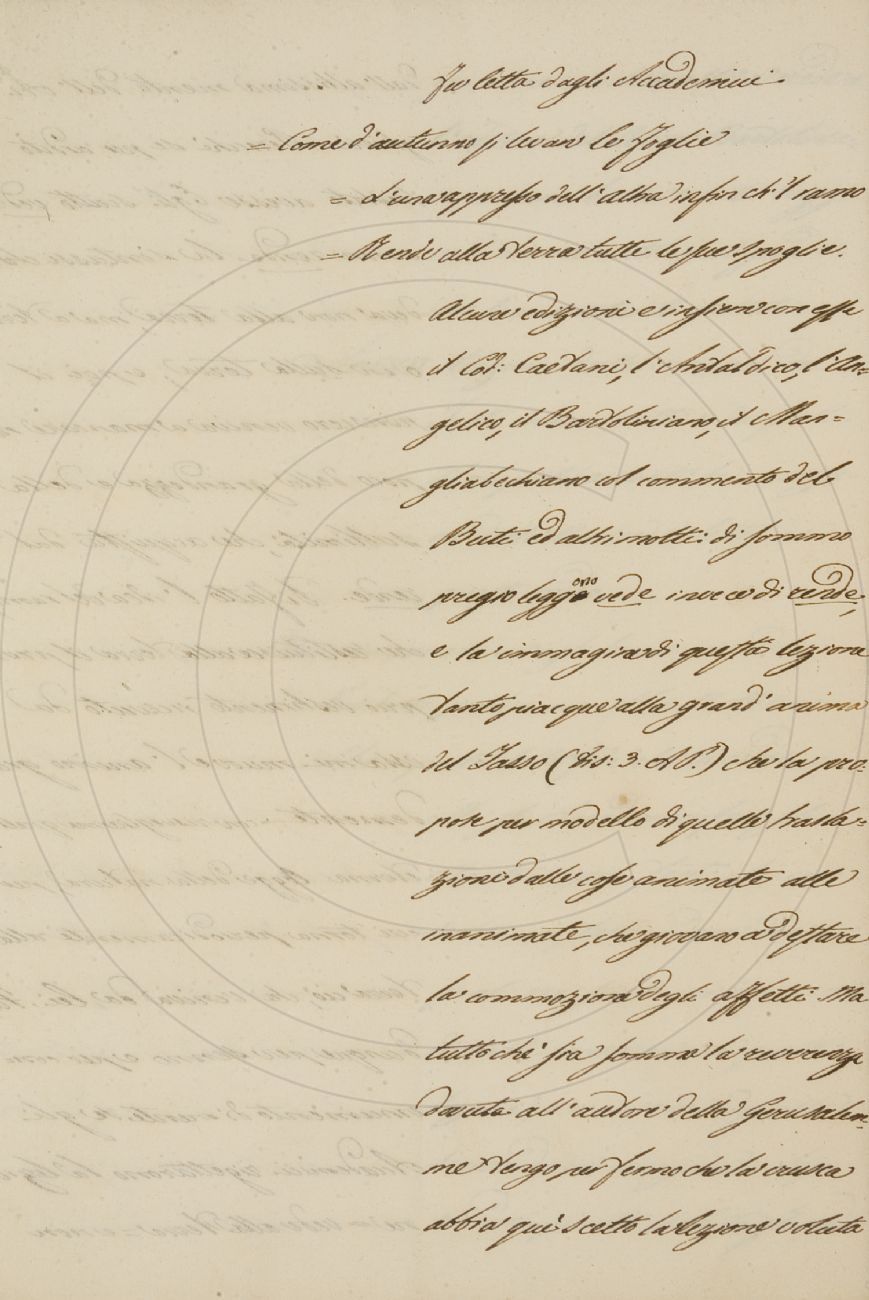 fu letta dagli Accademici.
= Come d'autunno si levan le foglie
= L'una appresso dell'altra infin ch'il ramo
= Rende alla terra tutte le sue spoglie.
Alcune edizioni e insieme con esse
il Cod: Caetani, l'Antaldico, l'An=
gelico, il Bartoliniano, il Man=
gliabechiano col commento del
Buti ed altri molti: di sommo
pregio leggono vede invece di rende,
e la immagine di questa lezione
tanto piacque alla grand'anima
del Tasso (Dis: 3. A. P.) che la pro=
pose per modello di quelle trasla=
zioni dalle cose animate alle
inanimate, che giovano a destare
la commozione degli affetti. Ma
tutto ché sia somma la reverenza
dovuta all'autore della Gerusalem=
me tengo per fermo che la crusca
abbia quì scelto la lezione voluta